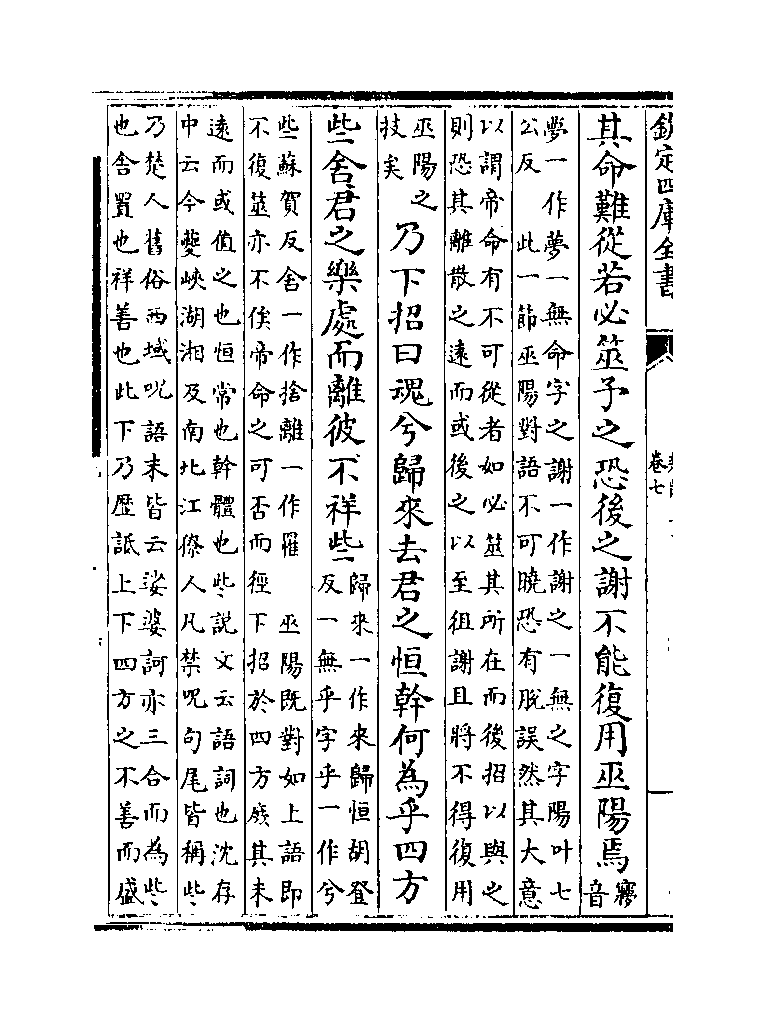 欽定四庫全書
卷七
其命難從若必筮予之恐後之謝不能復用巫陽焉㝱音
夢一作夢一無命字之謝一作謝之一無之字陽叶七
公反　此一節巫陽對語不可曉恐有脱誤然其大意
以謂帝命有不可從者如必筮其所在而後招以與之
則恐其離散之遠而或後之以至徂謝且將不得復用
巫陽之
技矣
乃下招曰魂兮歸來去君之恒幹何為乎四方
些舍君之樂處而離彼不祥些
歸來一作來歸恒胡登
反一無乎字乎一作兮
些蘇賀反舍一作捨離一作罹　巫陽既對如上語即
不復筮亦不俟帝命之可否而徑下招於四方庶其未
遠而或值之也恒常也幹體也些説文云語詞也沈存
中云今夔峽湖湘及南北江獠人凡禁呪句尾皆稱些
乃楚人舊俗西域呪語末皆云娑婆訶亦三合而為些
也舍置也祥善也此下乃歴詆上下四方之不善而盛